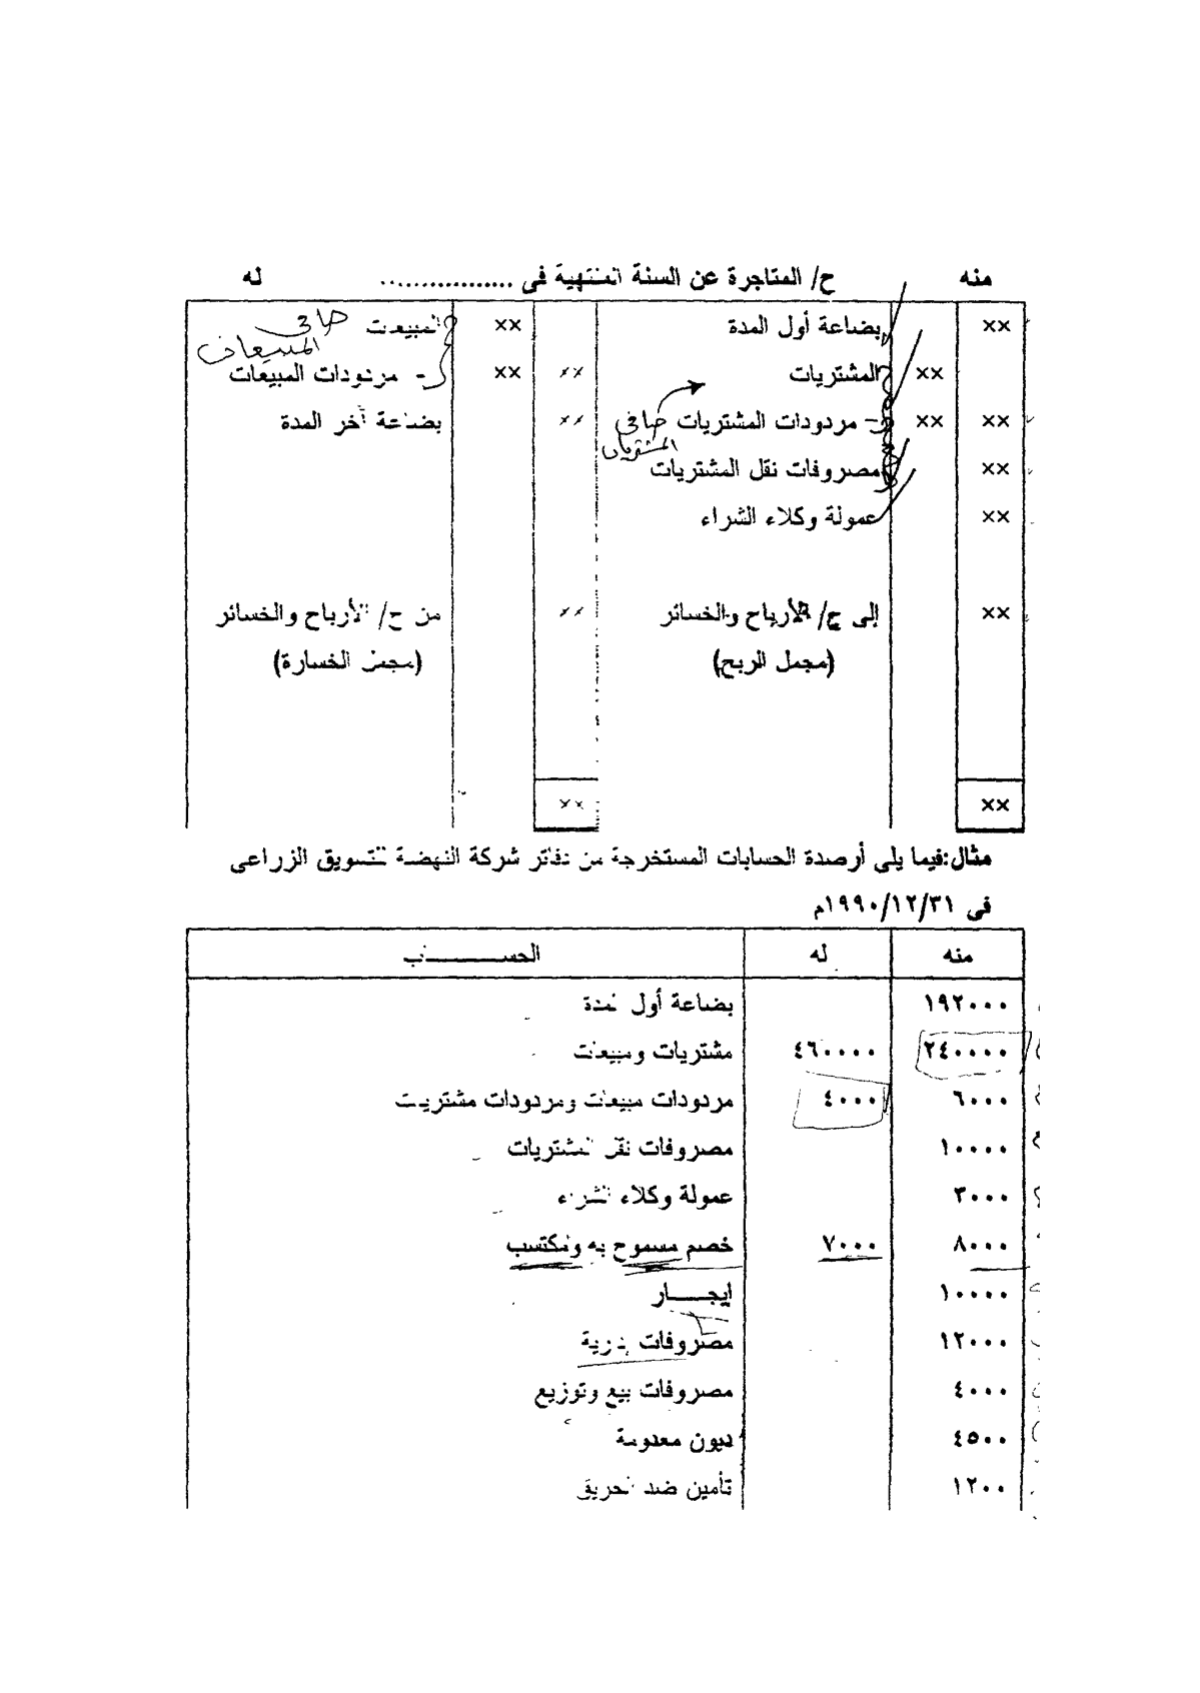 منه ح/ المتاجرة عن السنة المنتهية فى ................. له
×× بضاعة أول المدة ×× المبيعات صافى
المبيعات
×× المشتريات ×× ×× - مردودات المبيعات
×× ×× - مردودات المشتريات صافى ×× بضاعة آخر المدة
المشتريات
×× مصروفات نقل المشتريات
×× عمولة وكلاء الشراء
×× إلى ح/ الأرباح والخسائر ×× من ح/ الأرباح والخسائر
(مجمل الربح) (مجمل الخسارة)
×× ××
مثال:فيما يلى أرصدة الحسابات المستخرجة من دفاتر شركة النهضة للتسويق الزراعى
فى ١٩٩٠/١٢/٣١م
منه له الحســـــــاب
١٩٢٠٠٠ بضاعة أول المدة
٢٤٠٠٠٠ ٤٦٠٠٠٠ مشتريات ومبيعات
٦٠٠٠ ٤٠٠٠ مردودات مبيعات ومردودات مشتريات
١٠٠٠٠ مصروفات نقل المشتريات
٣٠٠٠ عمولة وكلاء الشراء
٨٠٠٠ ٧٠٠٠ خصم مسموح به ومكتسب
١٠٠٠٠ إيجـــــار
١٢٠٠٠ مصروفات إدارية
٤٠٠٠ مصروفات بيع وتوزيع
٤٥٠٠ ديون معدومة
١٢٠٠ تأمين ضد الحريق